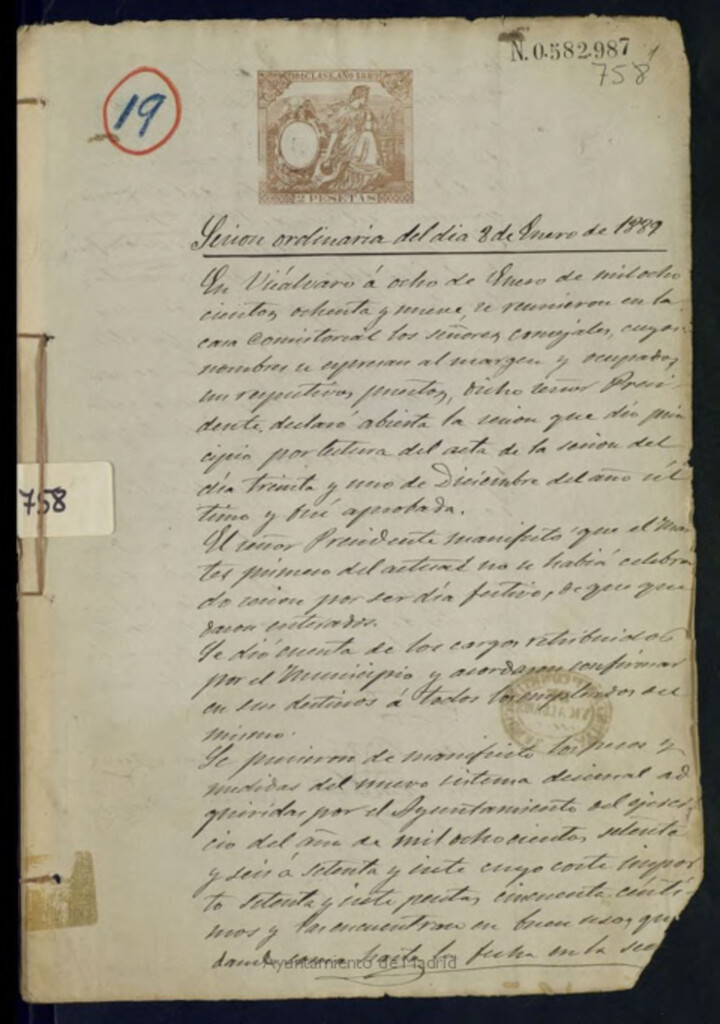 N. 0.582.987
758
19
10ª CLASE. AÑO 1889
2 PESETAS
Sesion ordinaria del dia 8 de Enero de 1889
En Vicálvaro á ocho de Enero de mil ocho
cientos ochenta y nueve, se reunieron en la
casa Comistorial los señores concejales, cuyos
nombres se espresan al margen y ocupados
sus respectivos puestos, dicho señor Presi
dente, declaró abierta la sesion que dió prin
cipio por lectura del acta de la sesion del
día treinta y uno de Diciembre del año úl
timo y fué aprobada.
El señor Presidente manifestó que el Mar
tes primero del actual no se habia celebra
do sesion por ser día festivo, de que que
daron enterados.
Se dió cuenta de los cargos retribuidos
por el Municipio y acordaron confirmar
en sus destinos á todos los empleados del
mismo.
Se pusieron de manifiesto los pesos y
medidas del nuevo sistema decimal ad
quiridas por el Ayuntamiento del ejerci
cio del año de mil ochocientos setenta
y seis á setenta y siete cuyo coste impor
ta setenta y siete pesetas cincuenta cénti
mos y se encuentran en buen uso, que
dando hasta la fecha en la
758
Ayuntamiento de Madrid